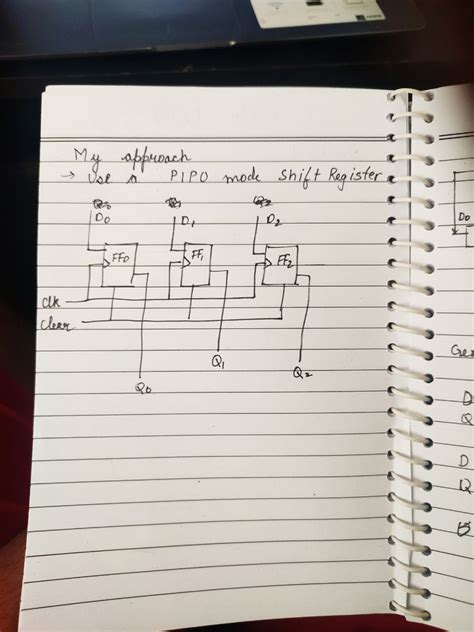 My approach
→ Use a PIPO mode Shift Register
D0 D1 D2
FF0 FF1 FF2
Clk
Clear
Q0 Q1 Q2
D0
Ge
D
Q
D
Q